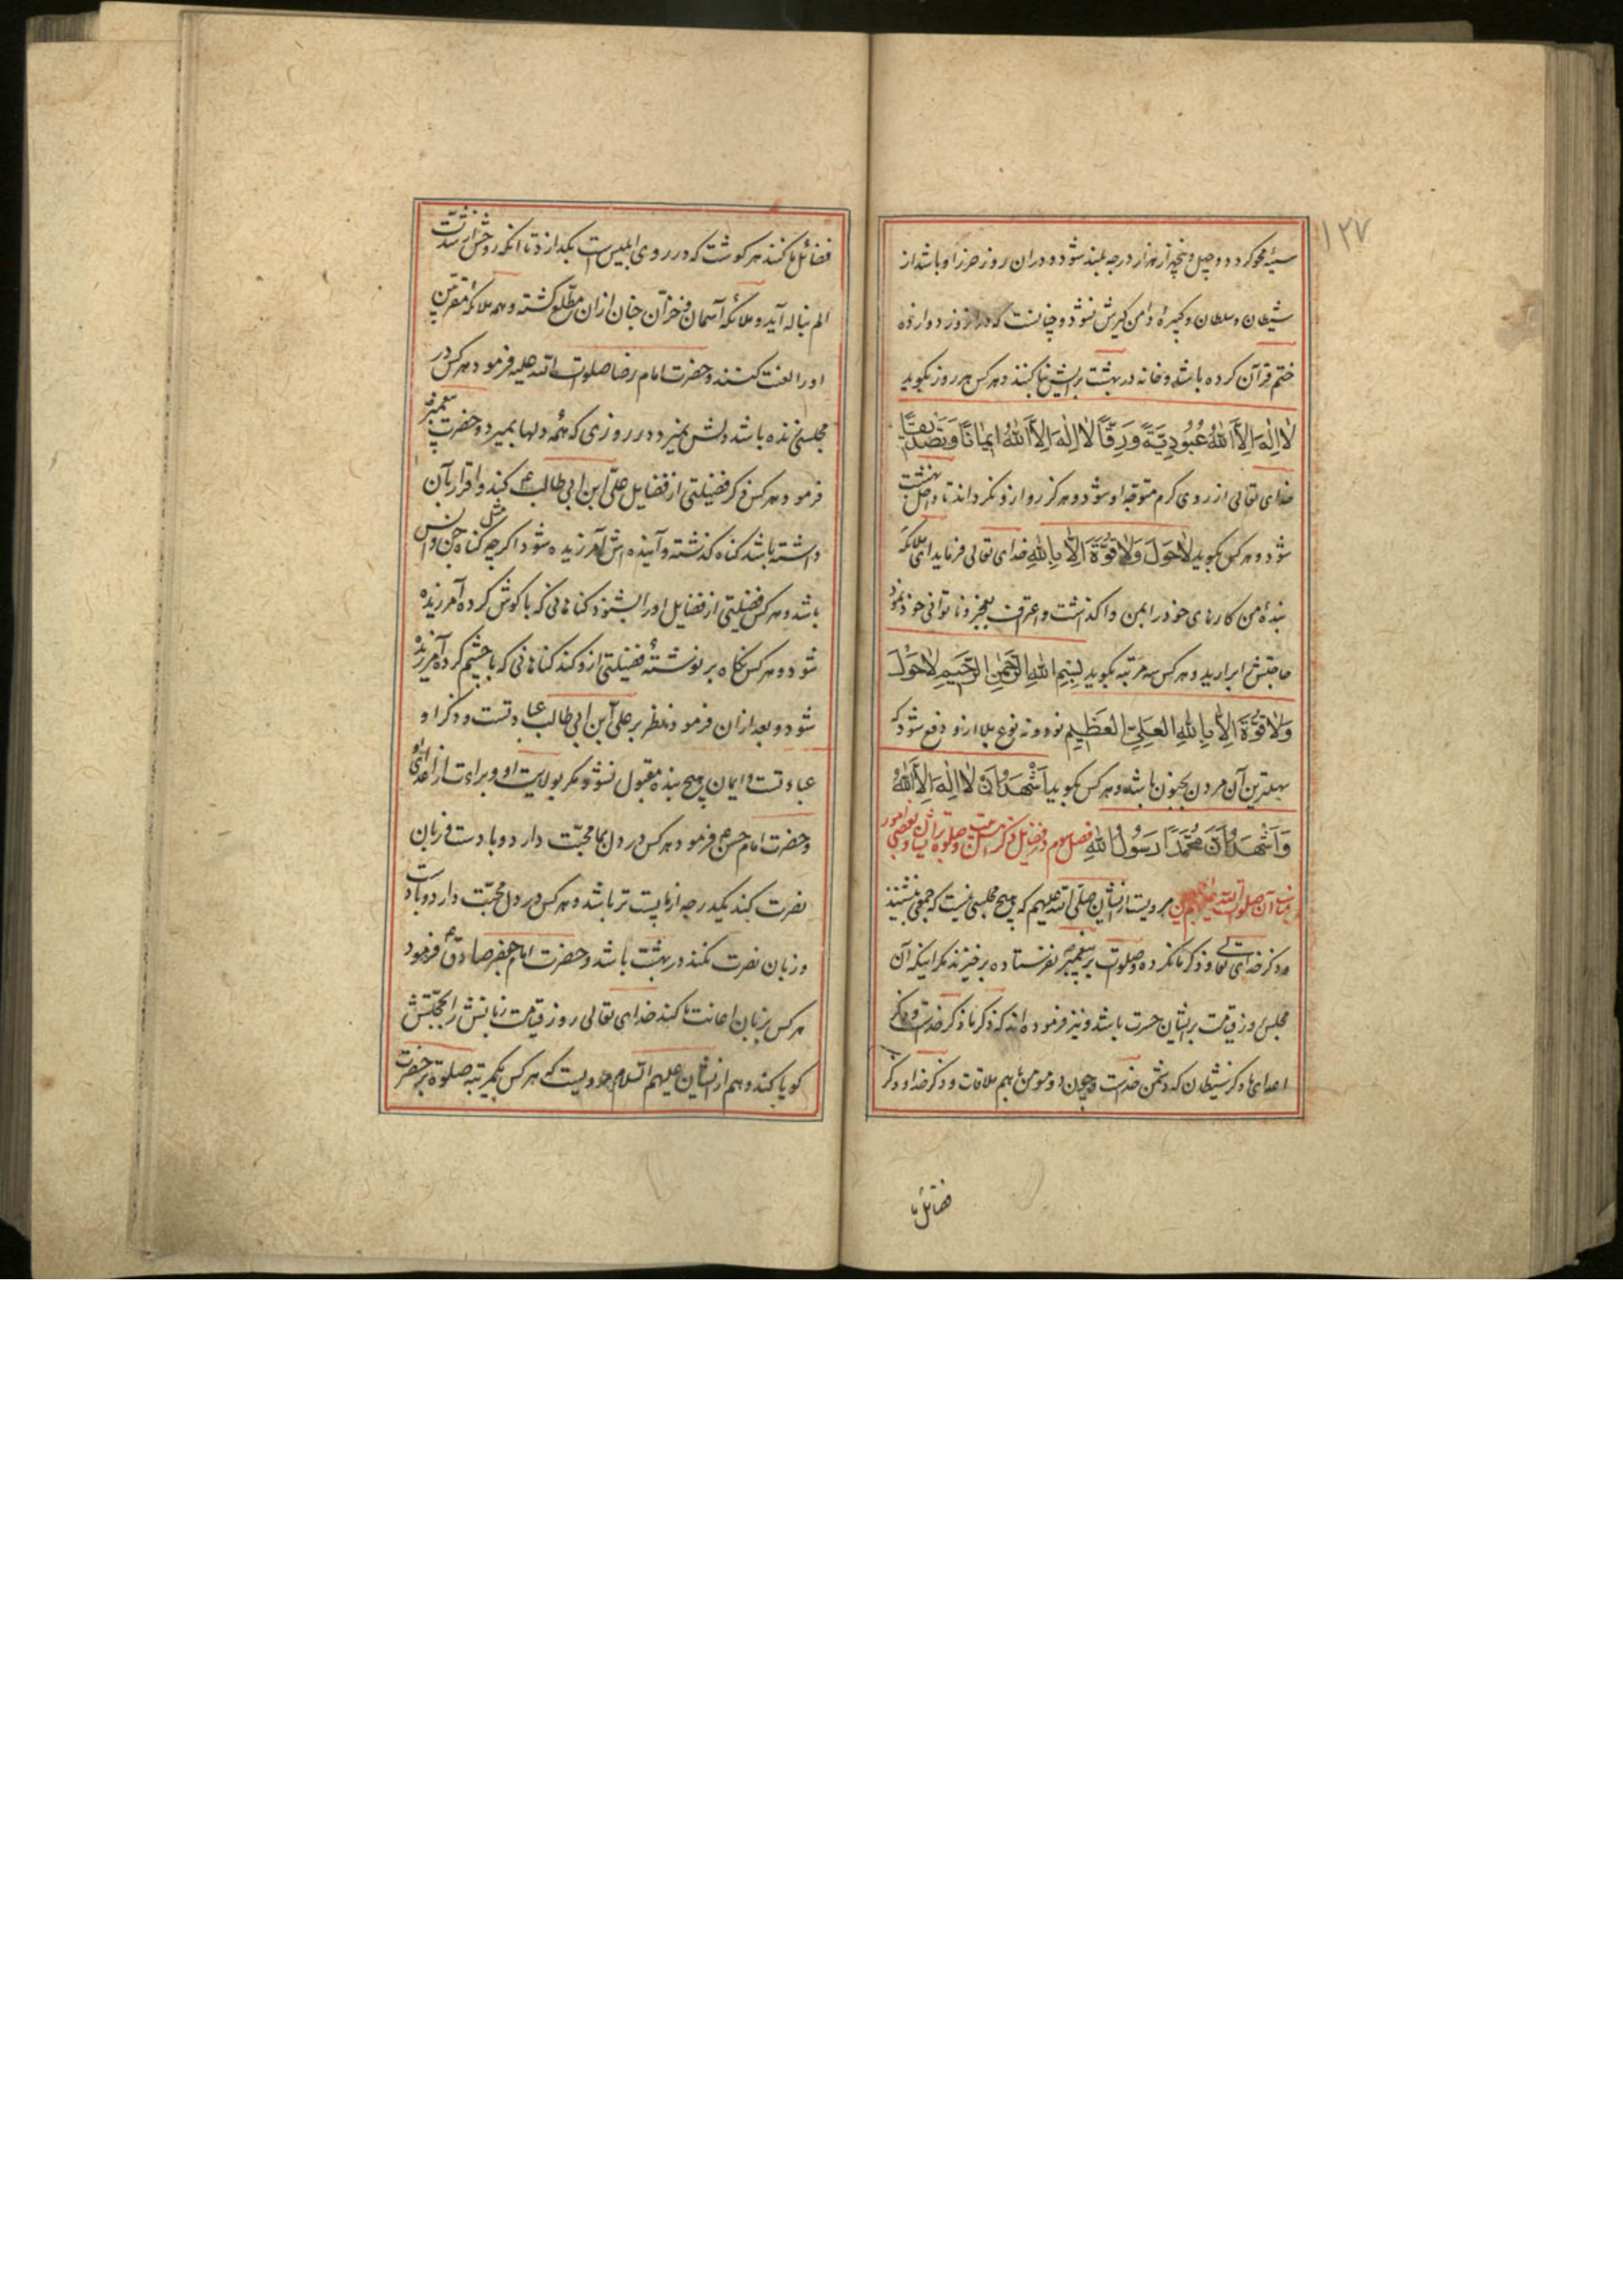 ۱۲۷
سیئه محو کردد و چهل و پنجهزار هزار درجه بلند شود و در ان روز حرز او باشد از
شیطان و سلطان و کبیرهٔ دامن کیرش نشود و چنانست که در انروز دوازده
ختم قرآن کرده باشد و خانه در بهشت برایش بنا کنند و هر کس هر روز بکوید
لَا اِلٰهَ اِلَّا اللّٰهُ عُبُودِیَّةً وَرِقًّا لَا اِلٰهَ اِلَّا اللّٰهُ ایمَانًا وَتَصْدیقًا
خدای تعالی از روی کرم متوجه او شود و هرکز رو ازو نکرداند تا داخل بهشت
شود و هر کس بکوید لَاحَوْلَ وَلَاقُوَّةَ اِلَّا بِاللّٰهِ خدای تعالی فرماید ای ملائکه
بندهٔ من کارهای خود را بمن واکذاشت و اعتراف بعجز و ناتوانی خود نمود
حاجتش برارید و هر کس سه مرتبه بکوید بِسْمِ اللّٰهِ الرَّحْمٰنِ الرَّحیمِ لَاحَوْلَ
وَلَاقُوَّةَ اِلَّا بِاللّٰهِ العَلِیِّ العَظیمِ نود و نه نوع بلا ازو دفع شود که
سهلترین آن مردن بجنون باشد و هر کس بکوید اَشْهَدُ اَنْ لَا اِلٰهَ اِلَّا اللّٰهُ
وَ اَشْهَدُ اَنَّ مُحَمَّدًا رَسُولُ اللّٰهِ فصل سوم در فضایل ذکر و صلوة و بعضی امور
آن صلوات الله مرویست از ایشان صلی الله علیهم که هیچ مجلسی نیست که جمعی بنشینند
و ذکر خدای تعالی و ذکر ما نکرده و صلوت بر پیغمبر نفرستاده برخیزند مکر اینکه آن
مجلس روز قیامت بر ایشان حسرت باشد و نیز فرموده اند که ذکر ما ذکر خداست و ذکر
اعدای ما ذکر شیطان که دشمن خداست و چون دو مومن با هم ملاقات و ذکر خدا و ذکر
فضائل ما
فضائل ما کنند هر کوشت که در روی ابلیس است بکدازد تا انکه روحش از شدت
الم بناله آید و ملائکه آسمان و خزان جنان ازان مطلع کشته و همه ملائکه مقربین
او را لعنت کنند و حضرت امام رضا صلوات الله علیه فرمود هر کس در
مجلسی زنده باشد دلش نمیرد در روزی که همه دلها بمیرد و حضرت پیغمبر
فرمود هر کس ذکر فضیلتی از فضایل علی ابن ابی طالب ع کند و اقرار بآن
داشته باشد کناه کذشته و آینده اش آمرزیده شود اکر چه مثل کناه جن و انس
باشد و هر کس فضیلتی از فضایل او را بشنود کناهانی که با کوش کرده آمرزیده
شود و هر کس نکاه بر نوشتهٔ فضیلتی ازو کند کناهانی که با چشم کرده آمرزیده
شود و بعد ازان فرمود نظر بر علی ابن ابی طالب عبادتست و ذکر او
عبادتست و ایمان هیچ بنده مقبول نشود مکر بولایت او و براءت از اعدای او
و حضرت امام حسن ع فرمود هر کس در دل بما محبت دارد و با دست و زبان
نصرت کند یکدرجه از ما پست تر باشد و هر کس در دل محبت دارد و با دست
و زبان نصرت نکند در بهشت باشد و حضرت امام جعفر صادق ع فرمود
هر کس بزبان اعانت ما کند خدای تعالی روز قیامت زبانش را بحجتش
کویا کند و هم از ایشان علیهم السلام مرویست که هر کس یکمرتبه صلوة بر حضرت